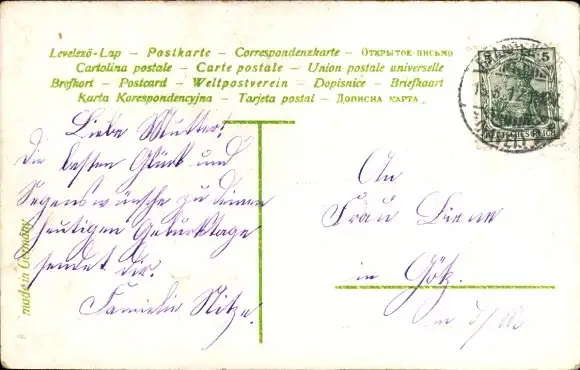 Levelező-Lap – Postkarte – Correspondenzkarte – Открытое письмо
Cartolina postale – Carte postale – Union postale universelle
Brefkort – Postcard – Weltpostverein – Dopisnice – Briefkaart
Karta Korespondencyjna – Tarjeta postal – Дописна карта.
5 5
DEUTSCHES REICH
Liebe Mutter!
Die besten Glück und
Segenswünsche zu deinem
heutigen Geburtstage
sendet dir.
Familie Nitze.
An
Frau Liene
in Götz.
made in Germany